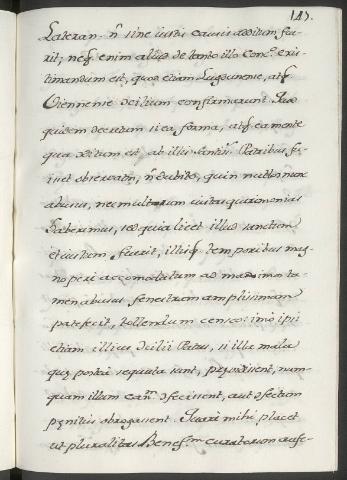 147.
Lateran. n̄ sine iustis causis æditum fue-
rit; neq̃ enim aliud de tanto illo Conc.º exis-
timandum est, quod etiam Lugdunense, atq̃
Viennense cōcilium confirmarunt. Quo
quidem decretum si ea forma, atq̃ ea mente
qua æditum est, ab illis Sanctiss. Patribus fu-
isset observatũ, n̄ dubito, quin nullos nunc
abusus, nec multorum iustas quærimonias
haberemus, sed quia licet illud sanctum
et iustum fuerit, illisq̃ temporibus mag-
nopere accomodatum ad maximos ta-
men abusus, fenestram amplissimam
patefecit, tollendum censeo: imò ipsi
etiam illius cōcilii Patres, si illa mala
quę postea sequuta sunt, pręvidissent, num-
quam illum canñ. ōfecissent, aut ōfectum
pęnitùs abrogassent. Quare mihi placet
ut pluralitas Benefm̃ curatorum aufe-